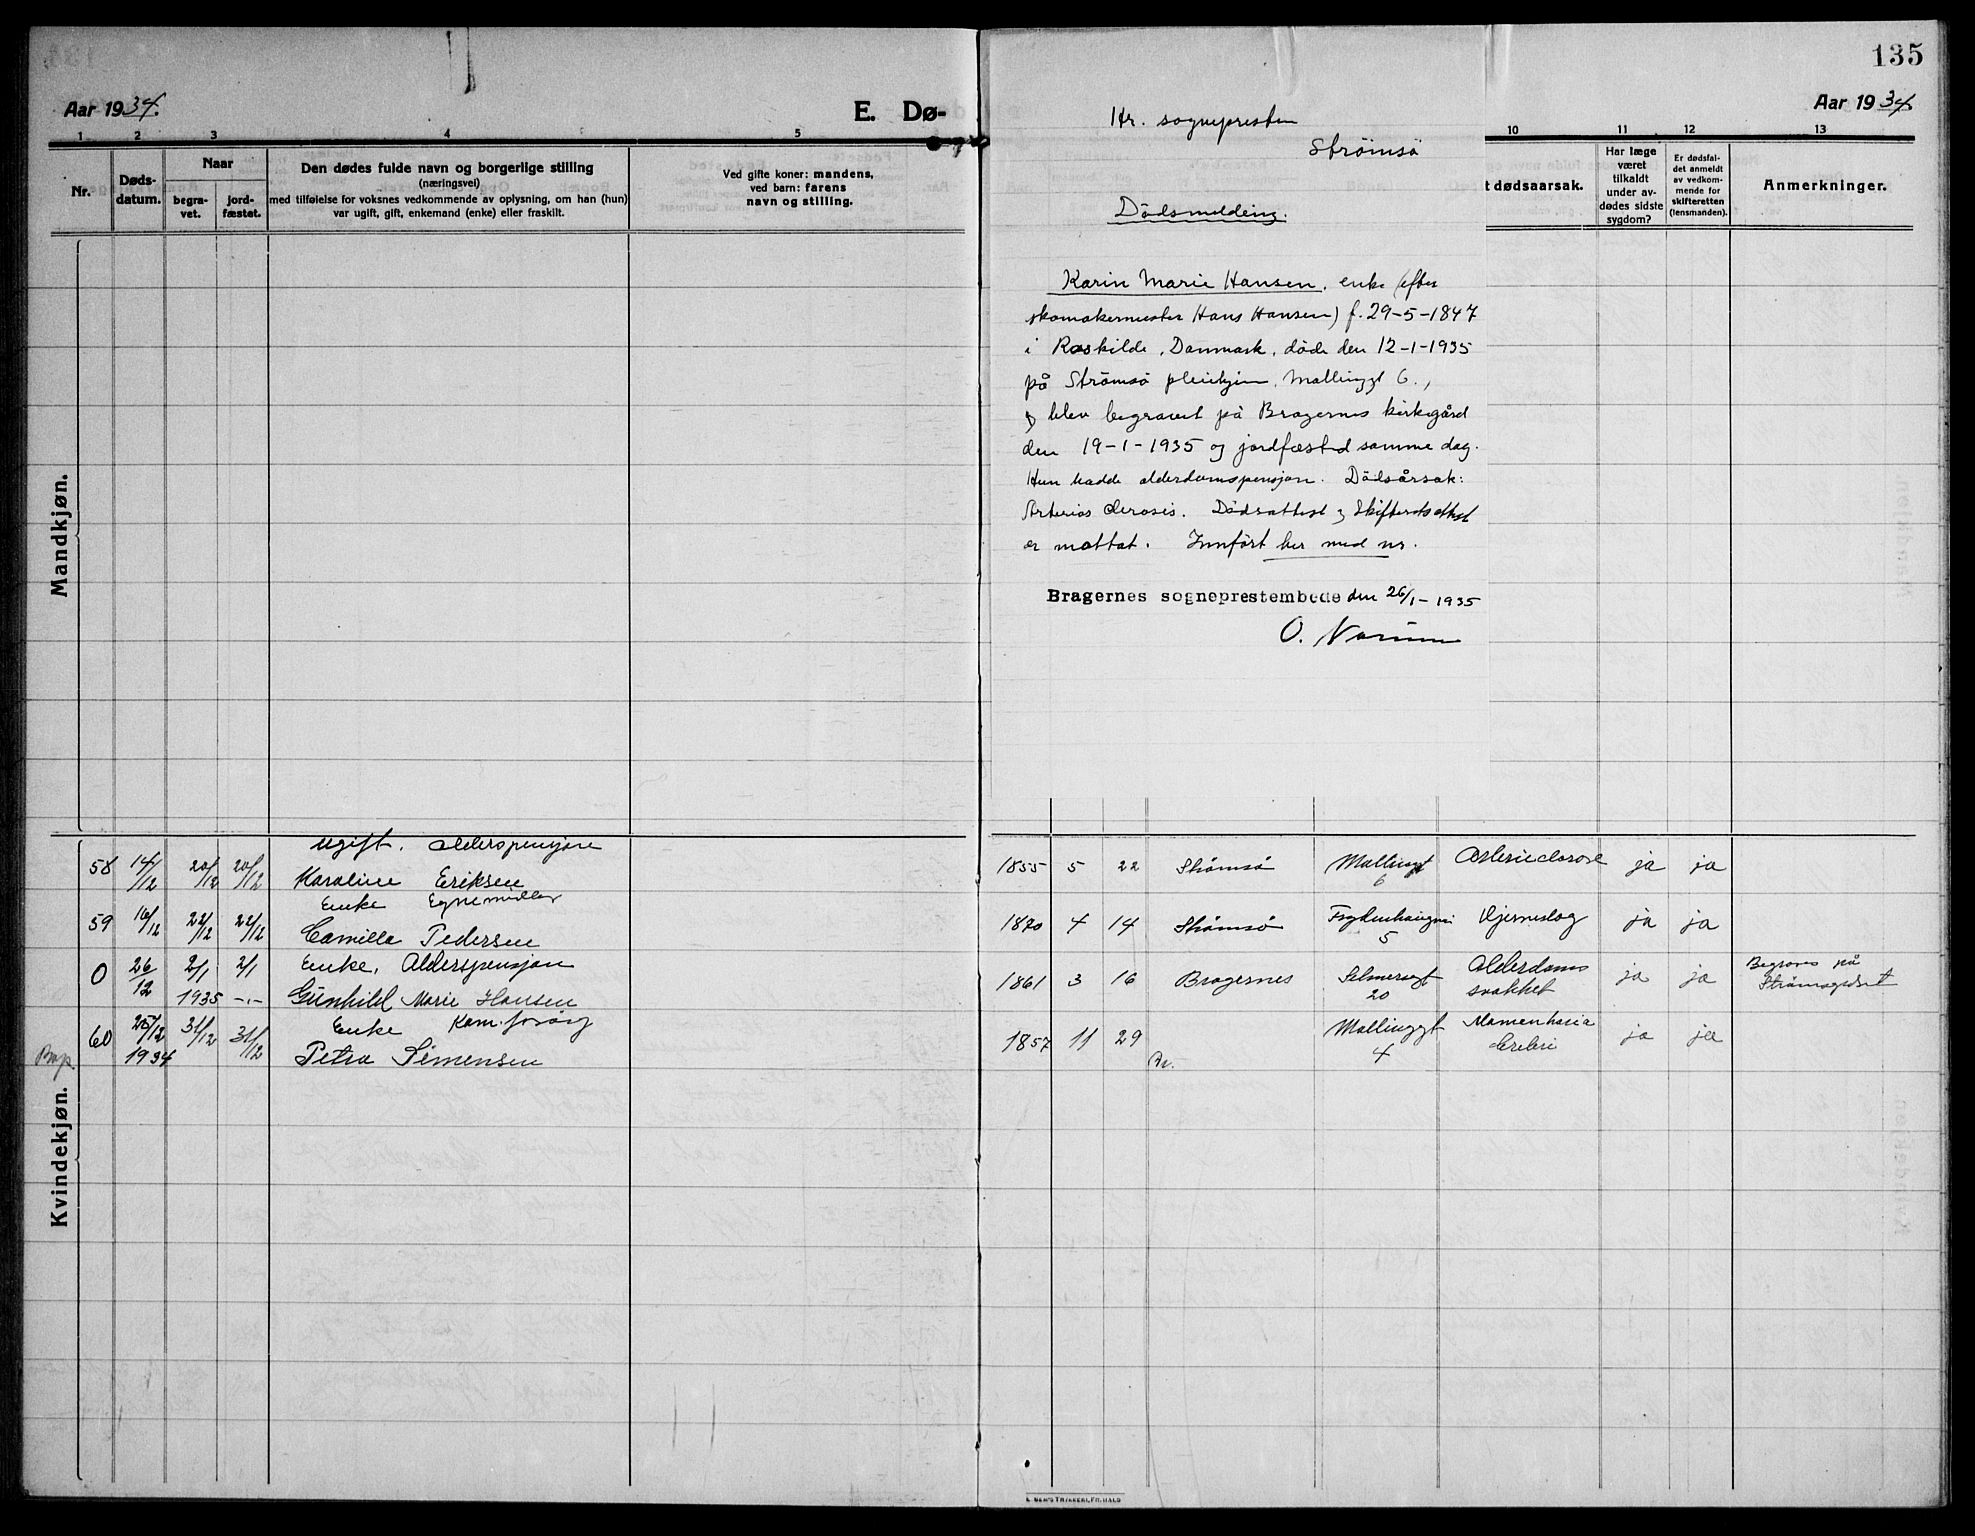 135
Aar 1934.
E. Dø-
Aar 1934
1 2 3 4 5
10 11 12 13
Nr.
Døds-
datum.
Naar
begra-
vet.
jord-
fæstet.
Den dødes fulde navn og borgerlige stilling
(næringsvei)
med tilføielse for voksnes vedkommende av oplysning, om han (hun)
var ugift, gift, enkemand (enke) eller fraskilt.
Ved gifte koner: mandens,
ved barn: farens
navn og stilling.
t dødsaarsak.
Har læge
været
tilkaldt
under av-
dødes sidste
sygdom?
Er dødsfal-
det anmeldt
av vedkom-
mende for
skifteretten
(lensmanden).
Anmerkninger.
Hr. sognepresten
Strömsö
Dödsmelding.
Karin Marie Hansen, enke (efter
skomakermester Hans Hansen) f. 29-5-1847
i Roskilde, Danmark, döde den 12-1-1935
på Strömsö pleiehjem, Mallinggt 6.,
og blev begravet på Bragernes kirkegård
den 19-1-1935 og jordfæstet samme dag.
Hun hadde alderdomspensjon. Dödsårsak:
Arterios clerosis. Dödsattest og Skifteretsattest
er mottat. Innfört her med nr.
Bragernes sogneprestembede den 26/1-1935
O. Norum
Mandkjøn.
Kvindekjøn.
ugift. alderspensjon
58 14/12 20/12 20/12 Karoline Eriksen 1855 5 22 Strømsø Mallinggt 6 ja ja
Enke
59 16/12 22/12 22/12 Camilla Pedersen 1870 4 14 Strømsø 5 Hjerneslag ja ja
Enke, Alderspensjon
0 26/12 2/1 2/1 1861 3 16 Bragernes Selmersgt 20 Alderdoms svakhet ja ja Begraves på
1935 -"- Gunhild Marie Hansen
Enke Kom. forsørg
60 25/12 31/12 31/12 1857 11 29 Mallinggt 4 ja ja
Bap. 1934 Petra Simensen Br.